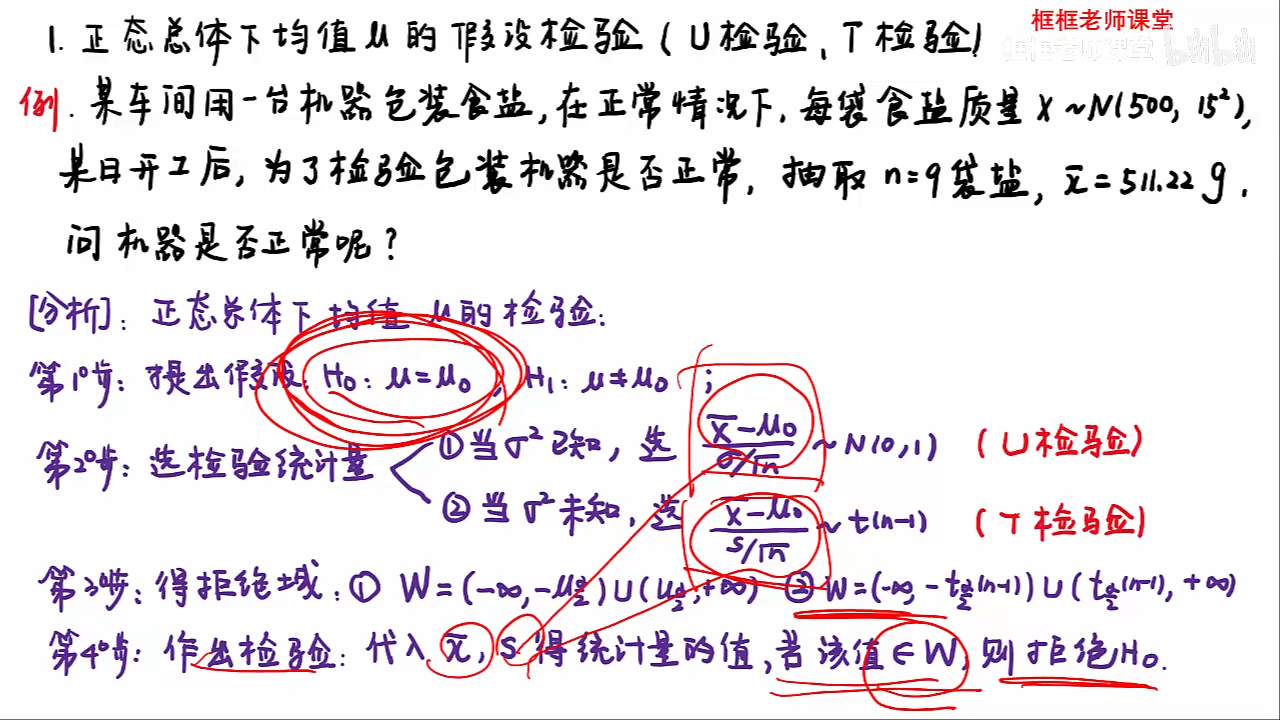 框框老师课堂
框框老师课堂 bilibili
1. 正态总体下均值μ的假设检验（U检验、T检验）
例. 某车间用一台机器包装食盐,在正常情况下,每袋食盐质量X~N(500, 15²),
某日开工后,为了检验包装机器是否正常,抽取n=9袋盐,x̄=511.22 g.
问机器是否正常呢?
[分析]: 正态总体下均值μ的检验:
第1°步: 提出假设: H₀: μ=μ₀, H₁: μ≠μ₀ ;
第2°步: 选检验统计量 ①当σ²已知, 选 (x̄-μ₀)/(σ/√n) ~ N(0,1) (U检验)
②当σ²未知, 选 (x̄-μ₀)/(s/√n) ~ t(n-1) (T检验)
第3°步: 得拒绝域: ① W=(-∞, -μ_{α/2})∪(μ_{α/2}, +∞) ② W=(-∞, -t_{α/2}(n-1))∪(t_{α/2}(n-1), +∞)
第4°步: 作出检验: 代入x̄, s得统计量的值, 若该值∈W, 则拒绝H₀.